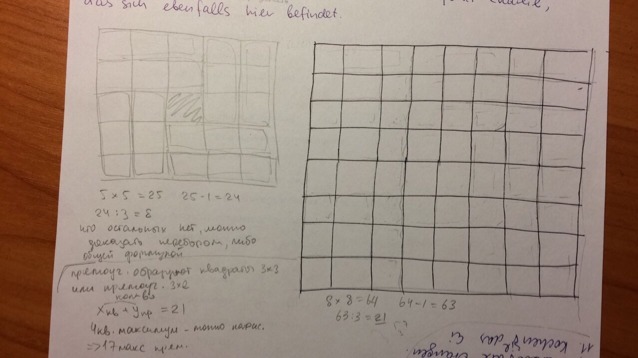 das sich ebenfalls hier befindet.
5 × 5 = 25   25 - 1 = 24
24 : 3 = 8
что остальных нет, можно
доказать перебором, либо
общей формулой
прямоуг. образуют квадраты 3×3
или прямоуг. 3×2
кол-во
xкв + yпр = 21
4 кв. максимум - можно нарис.
=> 17 макс прям.
8 × 8 = 64   64 - 1 = 63
63 : 3 = 21
11 kochen
das Ei